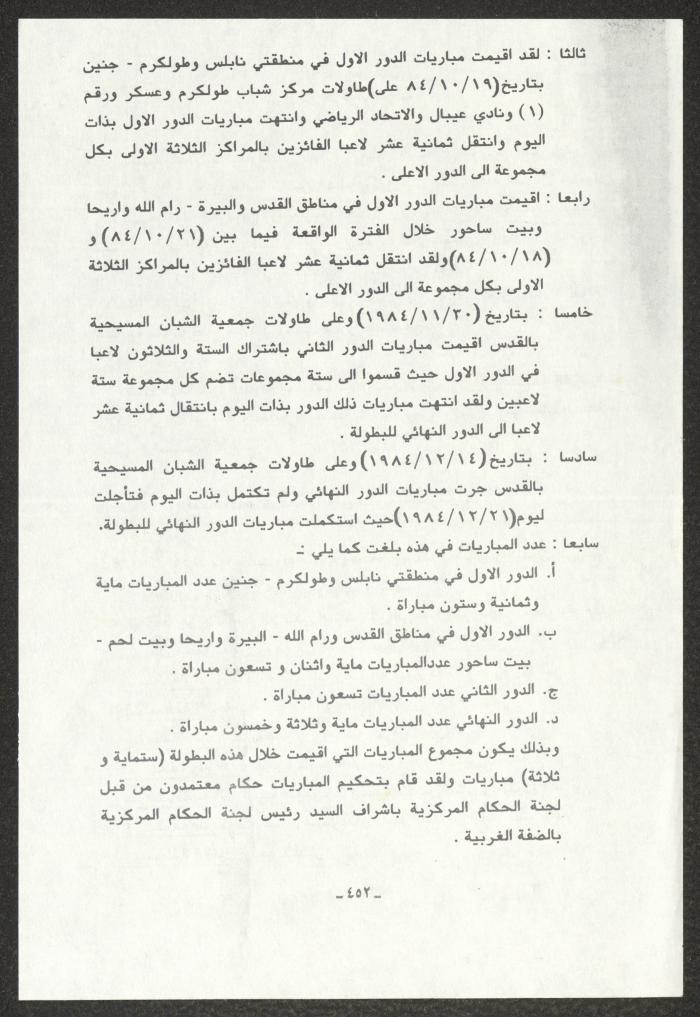 ثالثا : لقد اقيمت مباريات الدور الاول في منطقتي نابلس وطولكرم - جنين
بتاريخ (٨٤/١٠/١٩ على) طاولات مركز شباب طولكرم وعسكر ورقم
(١) ونادي عيبال والاتحاد الرياضي وانتهت مباريات الدور الاول بذات
اليوم وانتقل ثمانية عشر لاعبا الفائزين بالمراكز الثلاثة الاولى بكل
مجموعة الى الدور الاعلى .
رابعا : اقيمت مباريات الدور الاول في مناطق القدس والبيرة - رام الله واريحا
وبيت ساحور خلال الفترة الواقعة فيما بين (٨٤/١٠/٢١) و
(٨٤/١٠/١٨) ولقد انتقل ثمانية عشر لاعبا الفائزين بالمراكز الثلاثة
الاولى بكل مجموعة الى الدور الاعلى .
خامسا : بتاريخ (١٩٨٤/١١/٣٠) وعلى طاولات جمعية الشبان المسيحية
بالقدس اقيمت مباريات الدور الثاني باشتراك الستة والثلاثون لاعبا
في الدور الاول حيث قسموا الى ستة مجموعات تضم كل مجموعة ستة
لاعبين ولقد انتهت مباريات ذلك الدور بذات اليوم بانتقال ثمانية عشر
لاعبا الى الدور النهائي للبطولة .
سادسا : بتاريخ (١٩٨٤/١٢/١٤) وعلى طاولات جمعية الشبان المسيحية
بالقدس جرت مباريات الدور النهائي ولم تكتمل بذات اليوم فتأجلت
ليوم (١٩٨٤/١٢/٢١) حيث استكملت مباريات الدور النهائي للبطولة.
سابعا : عدد المباريات في هذه بلغت كما يلي :ـ
أ. الدور الاول في منطقتي نابلس وطولكرم - جنين عدد المباريات ماية
وثمانية وستون مباراة .
ب. الدور الاول في مناطق القدس ورام الله - البيرة واريحا وبيت لحم -
بيت ساحور عددالمباريات ماية واثنان و تسعون مباراة .
ج. الدور الثاني عدد المباريات تسعون مباراة .
د. الدور النهائي عدد المباريات ماية وثلاثة وخمسون مباراة .
وبذلك يكون مجموع المباريات التي اقيمت خلال هذه البطولة (ستماية و
ثلاثة) مباريات ولقد قام بتحكيم المباريات حكام معتمدون من قبل
لجنة الحكام المركزية باشراف السيد رئيس لجنة الحكام المركزية
بالضفة الغربية .
ـ ٤٥٢ ـ